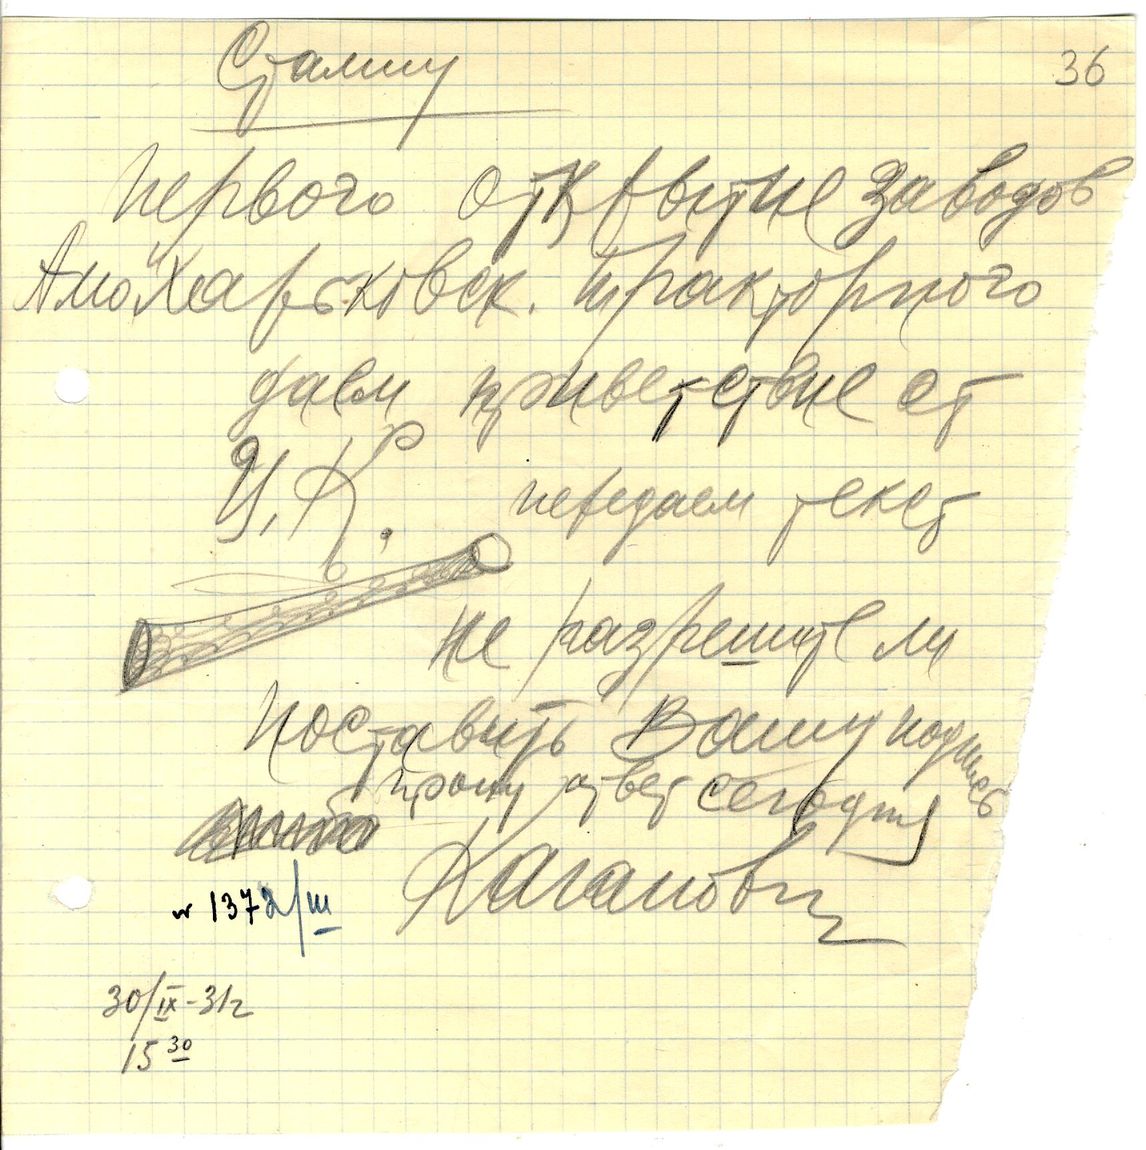 Сталину
36
Первого открытие заводов
Амо и Харьковск. тракторного
даем приветствие от
Ц.К. передаем текст
не разрешите ли
поставить Вашу подпись
прошу ответ сегодня
Каганович
№ 1372/III
30/IX-31г
15 30